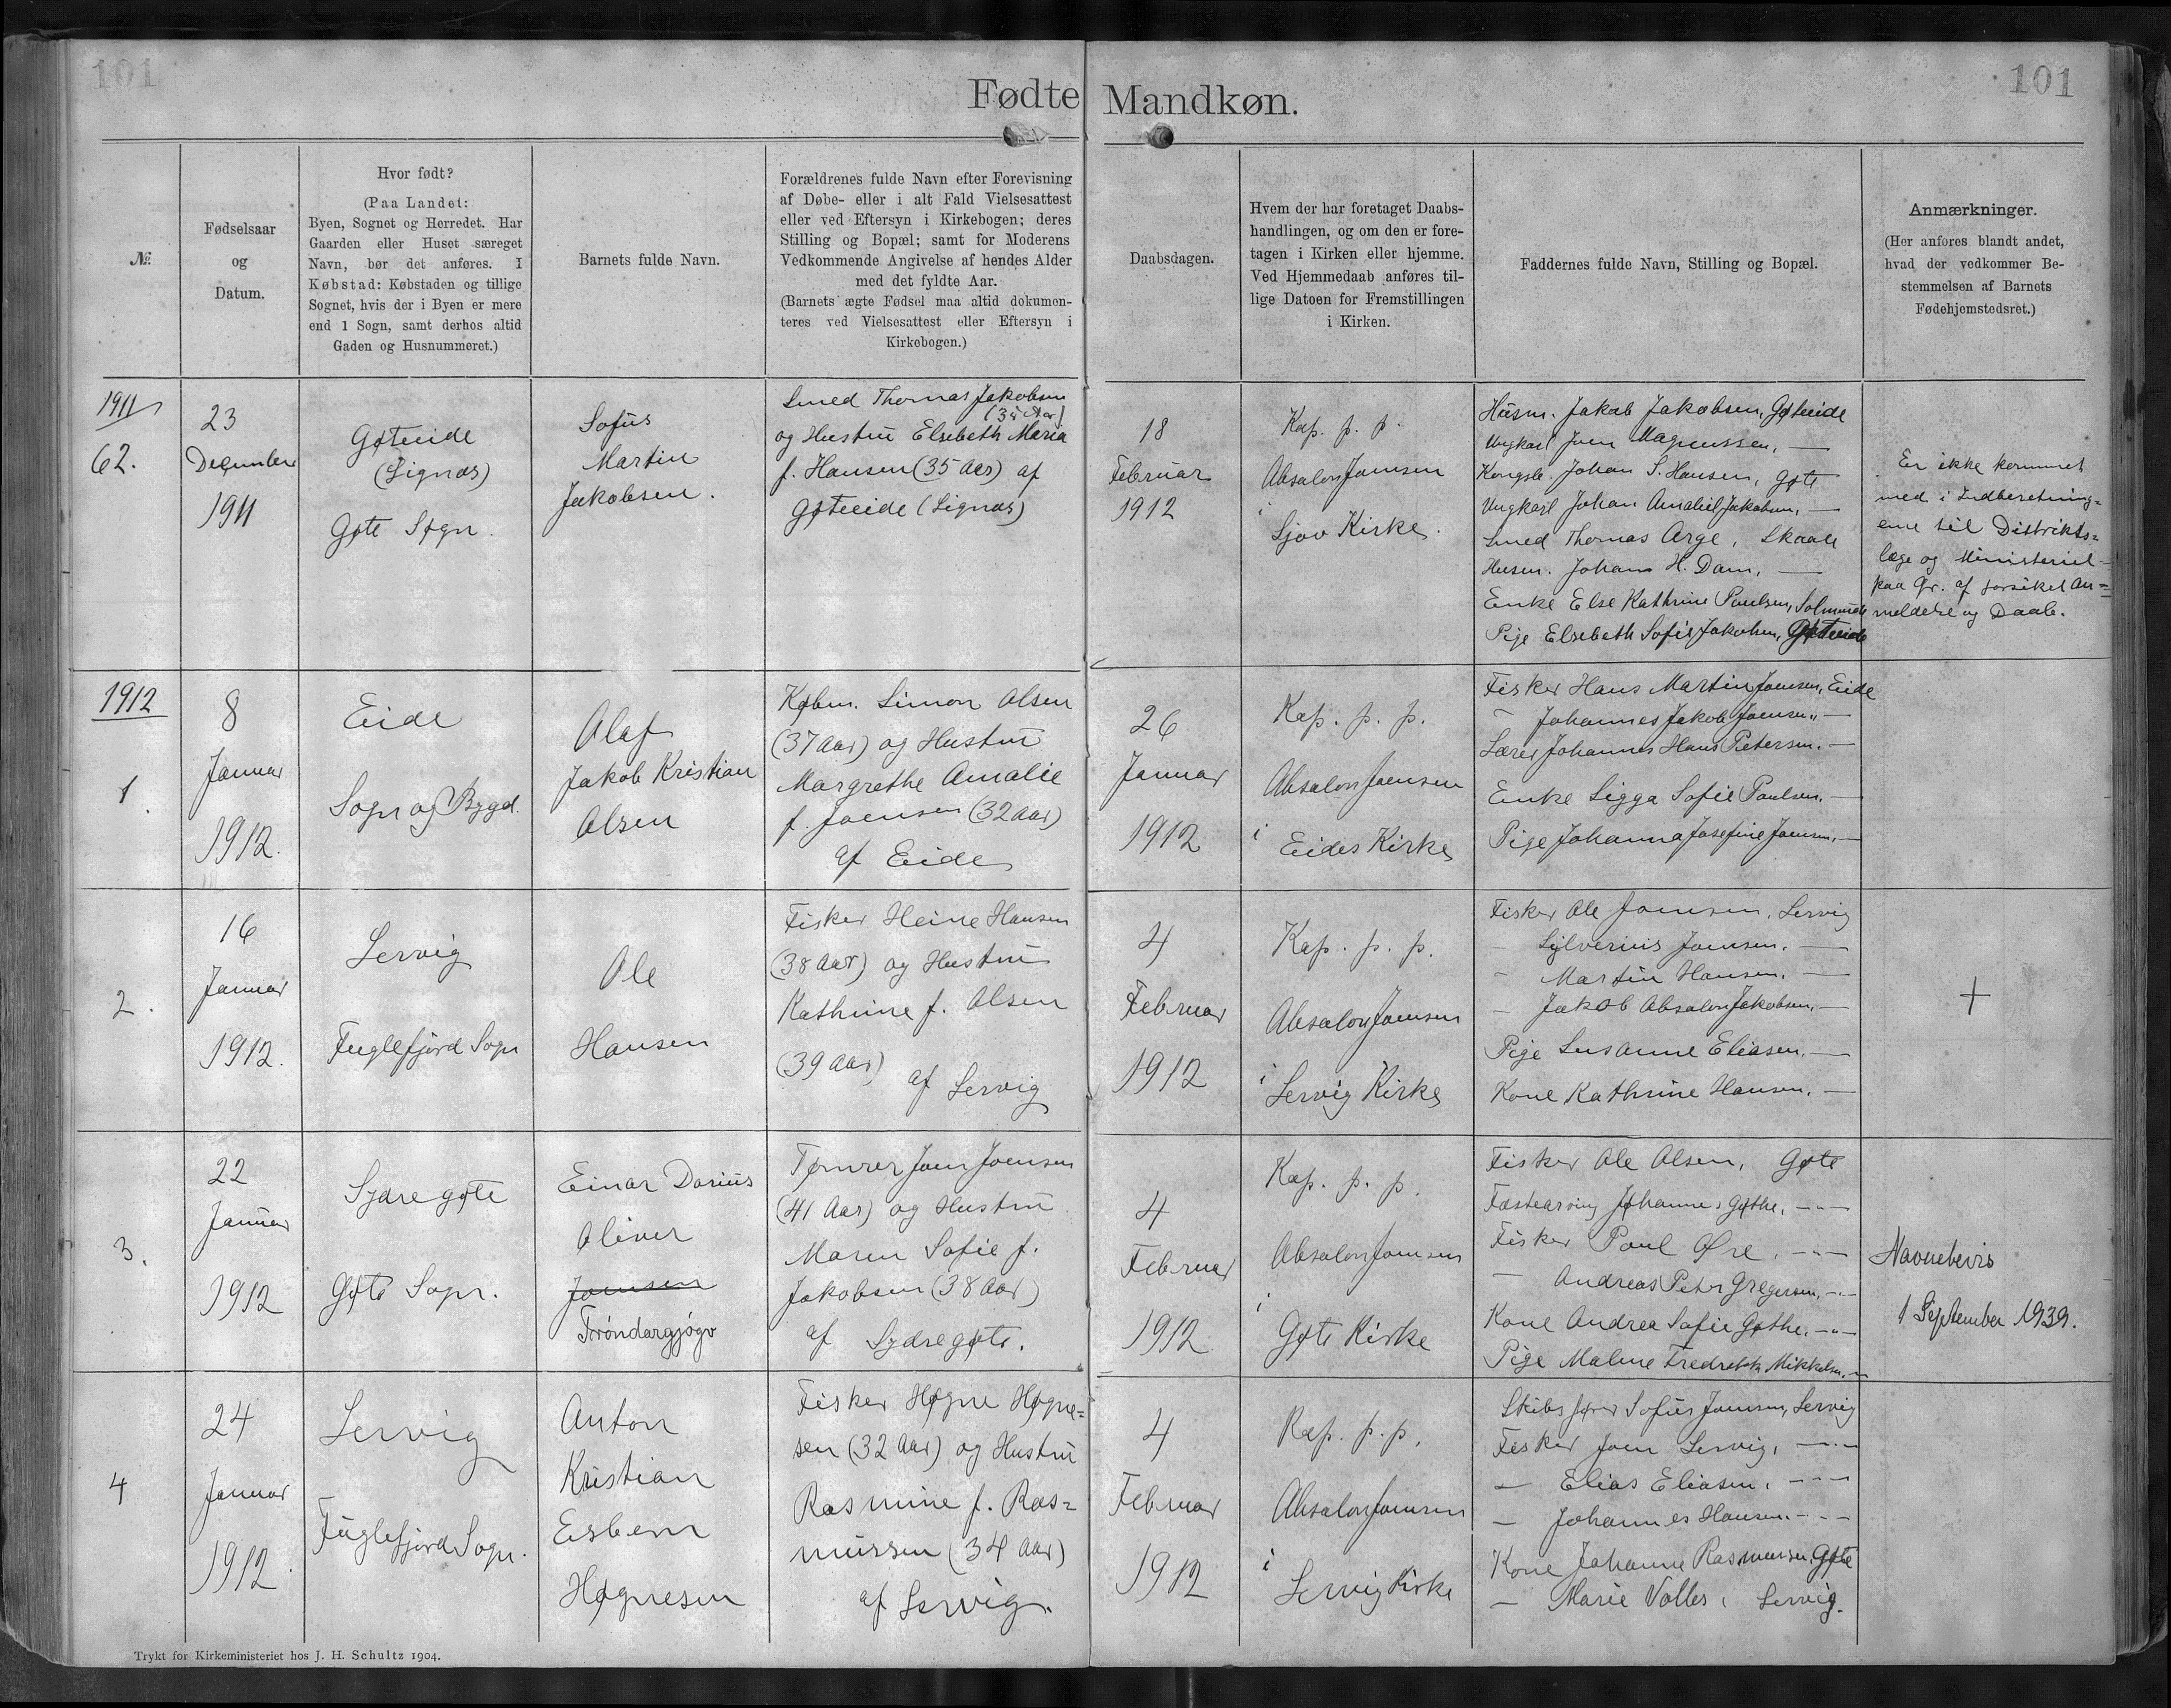 101
101
Fødte Mandkøn.
№
Fødselsaar
og
Datum.
Hvor født?
(Paa Landet:
Byen, Sognet og Herredet. Har
Gaarden eller Huset særeget
Navn, bør det anføres. I
Købstad: Købstaden og tillige
Sognet, hvis der i Byen er mere
end 1 Sogn, samt derhos altid
Gaden og Husnummeret.)
Barnets fulde Navn.
Forældrenes fulde Navn efter Forevisning
af Døbe- eller i alt Fald Vielsesattest
eller ved Eftersyn i Kirkebogen; deres
Stilling og Bopæl; samt for Moderens
Vedkommende Angivelse af hendes Alder
med det fyldte Aar.
(Barnets ægte Fødsel maa altid dokumen-
teres ved Vielsesattest eller Eftersyn i
Kirkebogen.)
Daabsdagen.
Hvem der har foretaget Daabs-
handlingen, og om den er fore-
tagen i Kirken eller hjemme.
Ved Hjemmedaab anføres til-
lige Datoen for Fremstillingen
i Kirken.
Faddernes fulde Navn, Stilling og Bopæl.
Anmærkninger.
(Her anføres blandt andet,
hvad der vedkommer Be-
stemmelsen af Barnets
Fødehjemstedsret.)
1911
62.
23
December
1911
Gøteeide
(Lignas)
Gøte Sogn.
Sofus
Martin
Jakobsen.
Smed Thomas Jakobsen
(35 Aar)
og Hustru Elsebeth Maria
f. Hansen (35 Aar) af
Gøteeide (Lignas)
18
Februar
1912
Kap. p. p.
Absalon Joensen
i
Sjov Kirke.
Husm. Jakob Jakobsen, Gøteeide
Ungkarl Joen Magnussen, —
Kongsb. Johan S. Hansen, Gøte
Ungkarl Johan Amaliel Jakobsen, —
Smed Thomas Arge, Skaale
Husm. Johan H. Dam, —
Enke Else Kathrine Poulsen,
Pige Elsebeth Sofie Jakobsen, Gøteeide
Er ikke kommet
med i Indberetning=
erne til Distrikts=
læge og Ministeriet
paa Gr. af forsinket An=
meldelse og Daab.
1912
1.
8
Januar
1912.
Eide
Sogn og Bygd.
Olaf
Jakob Kristian
Olsen
Købm. Simon Olsen
(37 Aar) og Hustru
Margrethe Amalie
f. Joensen (32 Aar)
af Eide
26
Januar
1912
Kap. p. p.
Absalon Joensen
i
Eides Kirke
Fisker Hans Martin Joensen, Eide
— Johannes Jakob Joensen, —
Lærer Johannes Hans Petersen. —
Enke Sigga Sofie Poulsen. —
Pige Johanna Josefine Joensen. —
2.
16
Januar
1912.
Lervig
Fuglefjord Sogn
Ole
Hansen
Fisker Heine Hansen
(38 Aar) og Hustru
Kathrine f. Olsen
(39 Aar)
af Lervig
4
Februar
1912
Kap. p. p.
Absalon Joensen
i
Lervig Kirke
Fisker Ole Joensen, Lervig
— Sylverius Joensen. —
— Martin Hansen. —
— Jakob Absalon Jakobsen. —
Pige Susanne Eliasen. —
Kone Kathrine Hansen. —
+
3.
22
Januar
1912
Sydregøte
Gøte Sogn.
Einar Darius
Oliver
Joensen
Tróndargjógv
Tømrer Joen Joensen
(41 Aar) og Hustru
Maren Sofie f.
Jakobsen (38 Aar)
af Sydregøte.
4
Februar
1912
Kap. p. p.
Absalon Joensen
i
Gøte Kirke
Fisker Ole Olsen, Gøte
Fæstearving Johannes Gøthe, —"—
Fisker Poul Øre, —"—
— Andreas Peter Gregersen, —"—
Kone Andrea Sofie Gøthe, —"—
Pige Malene Fredrekka Mikkelsen, —"—
Navnebevis
1 September 1939.
4
24
Januar
1912.
Lervig
Fuglefjord Sogn.
Anton
Kristian
Esbern
Høgnesen
Fisker Høgne Høgne=
sen (32 Aar) og Hustru
Rasmine f. Ras=
mussen (34 Aar)
af Lervig.
4
Februar
1912
Kap. p. p.
Absalon Joensen
i
Lervig Kirke
Skibsfører Sofus Joensen, Lervig
Fisker Joen Lervig, —"—
— Elias Eliasen. —"—
— Johannes Hansen. —"—
Kone Johanne Rasmussen, Gøte
— Marie Volles, Lervig.
Trykt for Kirkeministeriet hos J. H. Schultz 1904.